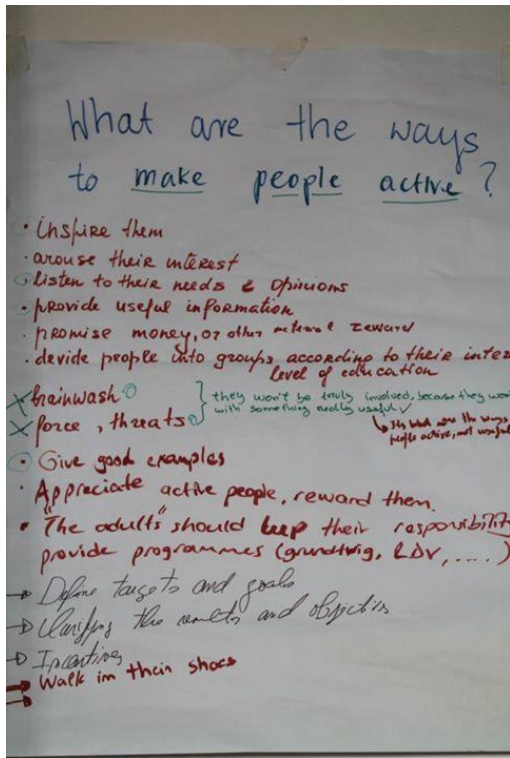 What are the ways
to make people active?
• inspire them
• arouse their interest
• listen to their needs & opinions
• provide useful information
• promise money, or other material reward
• devide people into groups according to their inter
level of education
X brainwash
they won't be truly involved, because they won
with something really useful ✓
X force, threats
people active, not useful
• Give good examples
• Appreciate active people, reward them.
• "The adults" should keep their responsibilit
provide programmes (grundtvig, LDV, ....)
→ Define targets and goals
→ Clarifying the results and objectives
→ Incentives
→ Walk in their shoes
→